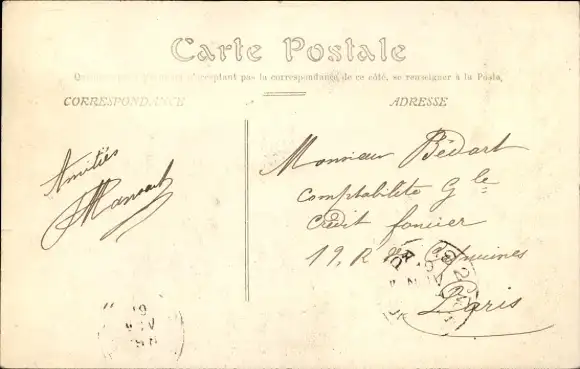 Carte Postale
pas la correspondance de ce côté, se renseigner à la Poste.
CORRESPONDANCE
ADRESSE
Amitiés
Monsieur Bédart
Comptabilité Gle
Crédit foncier
19, R des
Paris